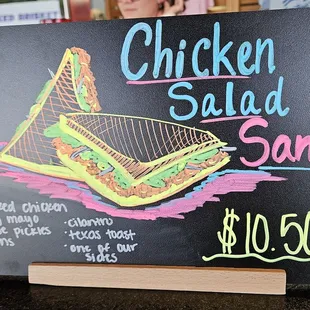 Chicken
Salad
San
ed chicken
mayo
pickles
• cilantro
• texas toast
• one of our
sides
$10.50